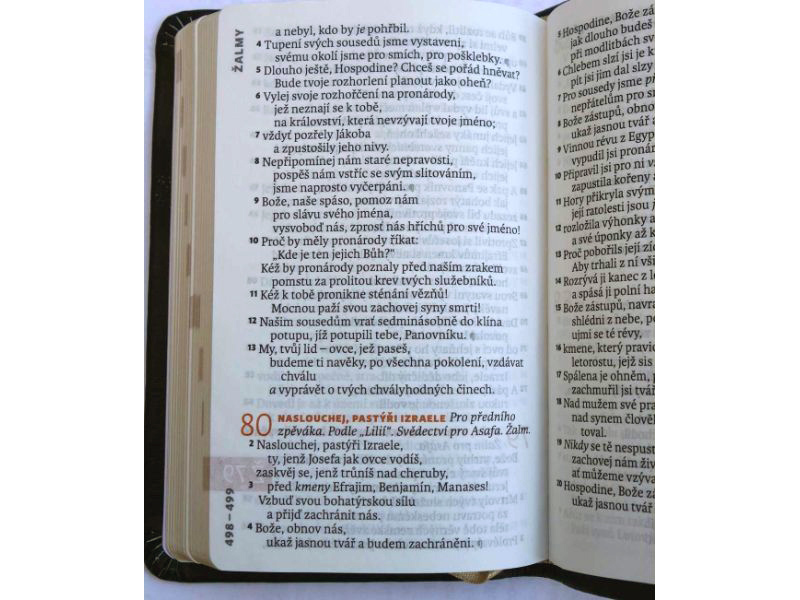 ŽALMY
a nebyl, kdo by je pohřbil.
4 Tupení svých sousedů jsme vystaveni,
svému okolí jsme pro smích, pro pošklebky.
5 Dlouho ještě, Hospodine? Chceš se pořád hněvat?
Bude tvoje rozhorlení planout jako oheň?
6 Vylej svoje rozhořčení na pronárody,
jež neznají se k tobě,
na království, která nevzývají tvoje jméno;
7 vždyť pozřely Jákoba
a zpustošily jeho nivy.
8 Nepřipomínej nám staré nepravosti,
pospěš nám vstříc se svým slitováním,
jsme naprosto vyčerpáni.
9 Bože, naše spáso, pomoz nám
pro slávu svého jména,
vysvoboď nás, zprosť nás hříchů pro své jméno!
10 Proč by měly pronárody říkat:
„Kde je ten jejich Bůh?“
Kéž by pronárody poznaly před naším zrakem
pomstu za prolitou krev tvých služebníků.
11 Kéž k tobě pronikne sténání vězňů!
Mocnou paží svou zachovej syny smrti!
12 Našim sousedům vrať sedminásobně do klína
potupu, jíž potupili tebe, Panovníku.
13 My, tvůj lid – ovce, jež paseš,
budeme ti navěky, po všechna pokolení, vzdávat
chválu
a vyprávět o tvých chvályhodných činech.
80 NASLOUCHEJ, PASTÝŘI IZRAELE Pro předního
zpěváka. Podle „Lilií“. Svědectví pro Asafa. Žalm.
2 Naslouchej, pastýři Izraele,
ty, jenž Josefa jak ovce vodíš,
zaskvěj se, jenž trůníš nad cheruby,
3 před kmeny Efrajim, Benjamín, Manases!
Vzbuď svou bohatýrskou sílu
a přijď zachránit nás.
4 Bože, obnov nás,
ukaž jasnou tvář a budem zachráněni.
Ž 79
498 – 499
5 Hospodine, Bože zá
jak dlouho budeš
při modlitbách sv
6 Chlebem slzí jsi je k
pít jsi jim dal slzy
7 Pro sousedy jsme
nepřátelům pro s
8 Bože zástupů, obno
ukaž jasnou tvář a
9 Vinnou révu z Egyp
vypudil jsi pronár
10 Připravil jsi pro ni v
zapustila kořeny a
11 Hory přikryla svým
její ratolesti jsou
12 rozložila výhonky a
a své úponky až k
13 Proč pobořils její zí
Aby trhali z ní vši
14 Rozrývá ji kanec z l
a spásá ji polní ha
15 Bože zástupů, navra
shlédni z nebe, po
ujmi se té révy,
16 kmene, který pravic
letorostu, jejž sis
17 Spálena je ohněm,
zachmuřil jsi tvář
18 Nad mužem své prav
nad synem člověk
toval.
19 Nikdy se tě nespust
zachovej nám živ
ať můžeme vzýva
20 Hospodine, Bože zá
ukaž jasnou tvář